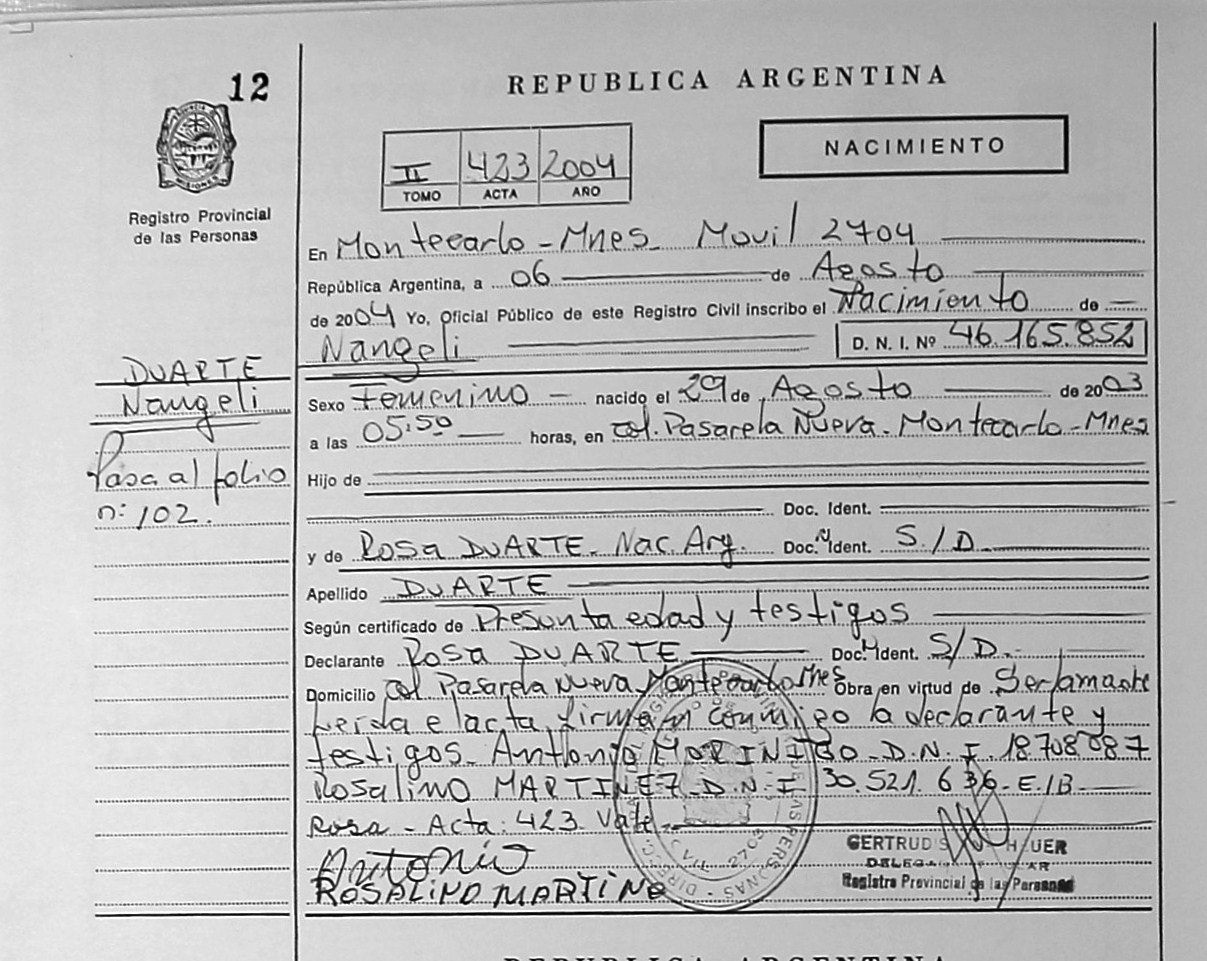 12
REPUBLICA ARGENTINA
NACIMIENTO
II 423 2004
TOMO ACTA AÑO
Registro Provincial
de las Personas
En Montecarlo - Mnes - Movil 2704
República Argentina, a 06 de Agosto
de 2004 Yo, Oficial Público de este Registro Civil inscribo el Nacimiento de
Nangeli D. N. I. Nº 46.165.852
DUARTE
Nangeli
Pasa al folio
n: 102.
Sexo Femenino - nacido el 29 de Agosto de 2003
a las 05:50 horas, en Col. Pasarela Nueva - Montecarlo - Mnes
Hijo de
Doc. Ident.
y de Rosa DUARTE - Nac. Arg. Doc. Ident. S/D
Apellido DUARTE
Según certificado de Presunta edad y testigos
Declarante Rosa DUARTE Doc. Ident. S/D.
Domicilio Col. Pasarela Nueva Montecarlo Mnes Obra en virtud de Ser la madre
Leida el acta firman conmigo la declarante y
testigos - Antonio MORINIGO - D.N.I. 18708087
Rosalino MARTINEZ - D.N.I. 30.521.636 - E/B
Rosa - Acta: 423. Vale
Antonio
ROSALINO MARTINE
GERTRUDIS
Registro Provincial de las Personas
REPUBLICA ARGENTINA